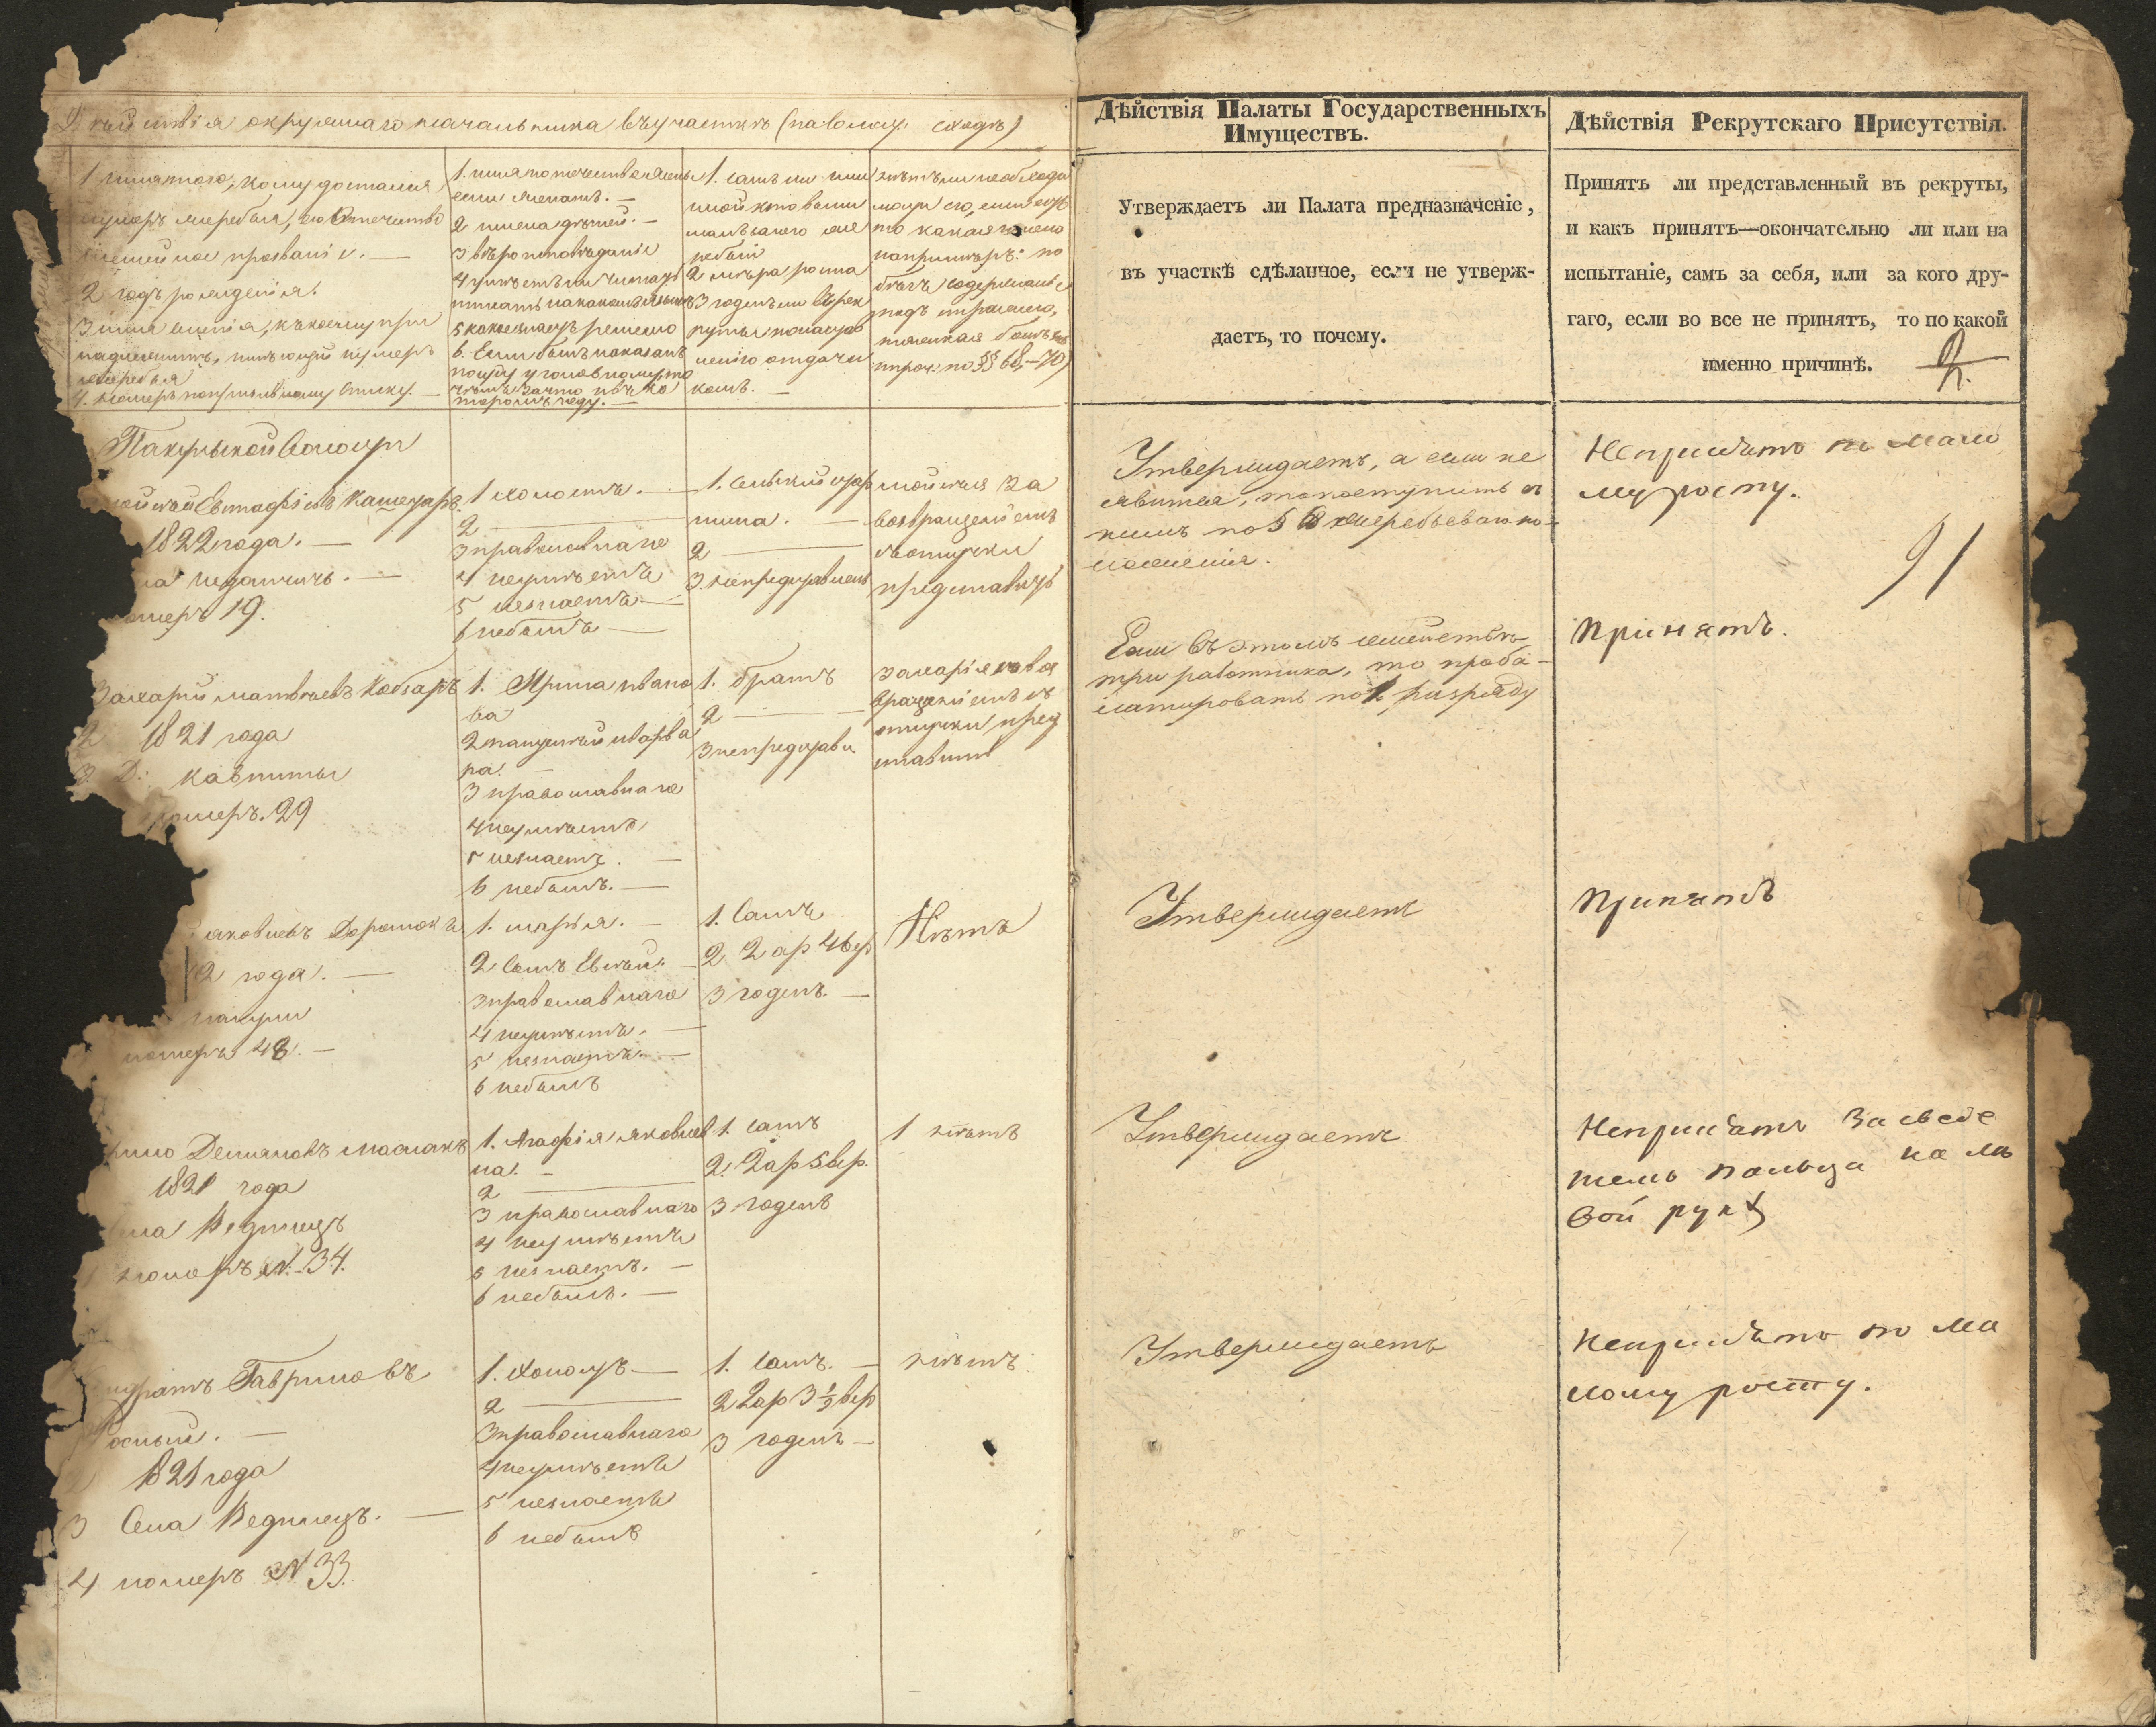 Действія окружнаго начальника въ участкѣ (на волост. сходѣ)
1 имя того, кому достался
нумеръ жеребья, его отечество
семейное прозваніе. —
2 годъ рожденія.
3 имя селенія, къ коему при
надлежитъ, имѣющій нумеръ
жеребья
4. номеръ по призывному списку. —
1. имя по отечеству жены
если женатъ. —
2 имена дѣтей. —
3 вѣроисповѣданіе
4 умѣетъ ли читать
писать на какомъ языкѣ
5 какое знаетъ ремесло
6. Если былъ наказанъ
по суду уголовному, то
чѣмъ за что и въ ко
торомъ году. —
1. самъ ли или
иной кто вынималъ
жребій
2 мѣра роста
3 годенъ ли въ рек
руты
отдачи
комъ. —
то какая именно
напримѣръ: по
бѣгъ, содержаніе
подъ стражею,
и проч: по §§ 68–70)
Дѣйствія Палаты Государственныхъ
Имуществъ.
Дѣйствія Рекрутскаго Присутствія.
Утверждаетъ ли Палата предназначеніе,
въ участкѣ сдѣланное, если не утверж-
даетъ, то почему.
Принятъ ли представленный въ рекруты,
и какъ принятъ—окончательно ли или на
испытаніе, самъ за себя, или за кого дру-
гаго, если во все не принятъ, то по какой
именно причинѣ.
2.
Пакульской Волости
Евстафіевъ Кашецаръ.
1822 года. —
номеръ 19.
1 холостъ. —
2 —
3 православнаго
4 неумѣетъ
5 незнаетъ. —
6 небылъ —
1. Сельскій стар
шина. —
2 —
3. непредставленъ
за
возвращеніемъ
съ отлучки
представить
Утверждаетъ, а если не
явится, то поступить съ
нимъ по § жеребьеваго по-
ложенія.
Непринято по мало
му росту.
91
Захарій Матвѣевъ Кобзаръ
2 1821 года
3. Д: Кавпиты
номеръ. 29
1. Ярина Ивано
ва
2 и Варва
ра. —
3 православнаго
4 неумѣетъ
5 незнаетъ. —
6 небылъ. —
1. братъ
2 —
3 непредстави
Захарія по воз
вращеніемъ съ
отлучки пред
ставить
Если въ этомъ семействѣ
три работника, то проба-
лотировать по 1 разряду
Принятъ.
Яковлевъ Доропокъ
2 года. —
Пакули
номеръ 48. —
1. Марья. —
2 Сынъ Евсѣй. —
3 православнаго
4 неумѣетъ. —
5 незнаетъ. —
6 небылъ
1. Самъ
2 2 ар 4 вер
3 годенъ. —
Нѣтъ
Утверждаетъ
Принятъ
Демяновъ Маслакъ
1821 года
Села Ведилецъ
номеръ N. 34.
1. Агафія Яковлев
на. —
2 —
3 православнаго
4 неумѣетъ
5 незнаетъ. —
6 небылъ. —
1. самъ
2. 2 ар 5 вер.
3 годенъ
1 нѣтъ
Утверждаетъ
Непринятъ за сведе
ніемъ пальца на лѣ
вой рукѣ
Кондратъ Гавриловъ
1821 года
3 Села Ведилецъ. —
4 номеръ N 33.
1. Холостъ —
2 —
3 православнаго
4 неумѣетъ
5 незнаетъ
6 небылъ
1. Самъ. —
2 2 ар 3 1/2 вер
3 годенъ —
нѣтъ
Утверждаетъ
Непринято по ма
лому росту.